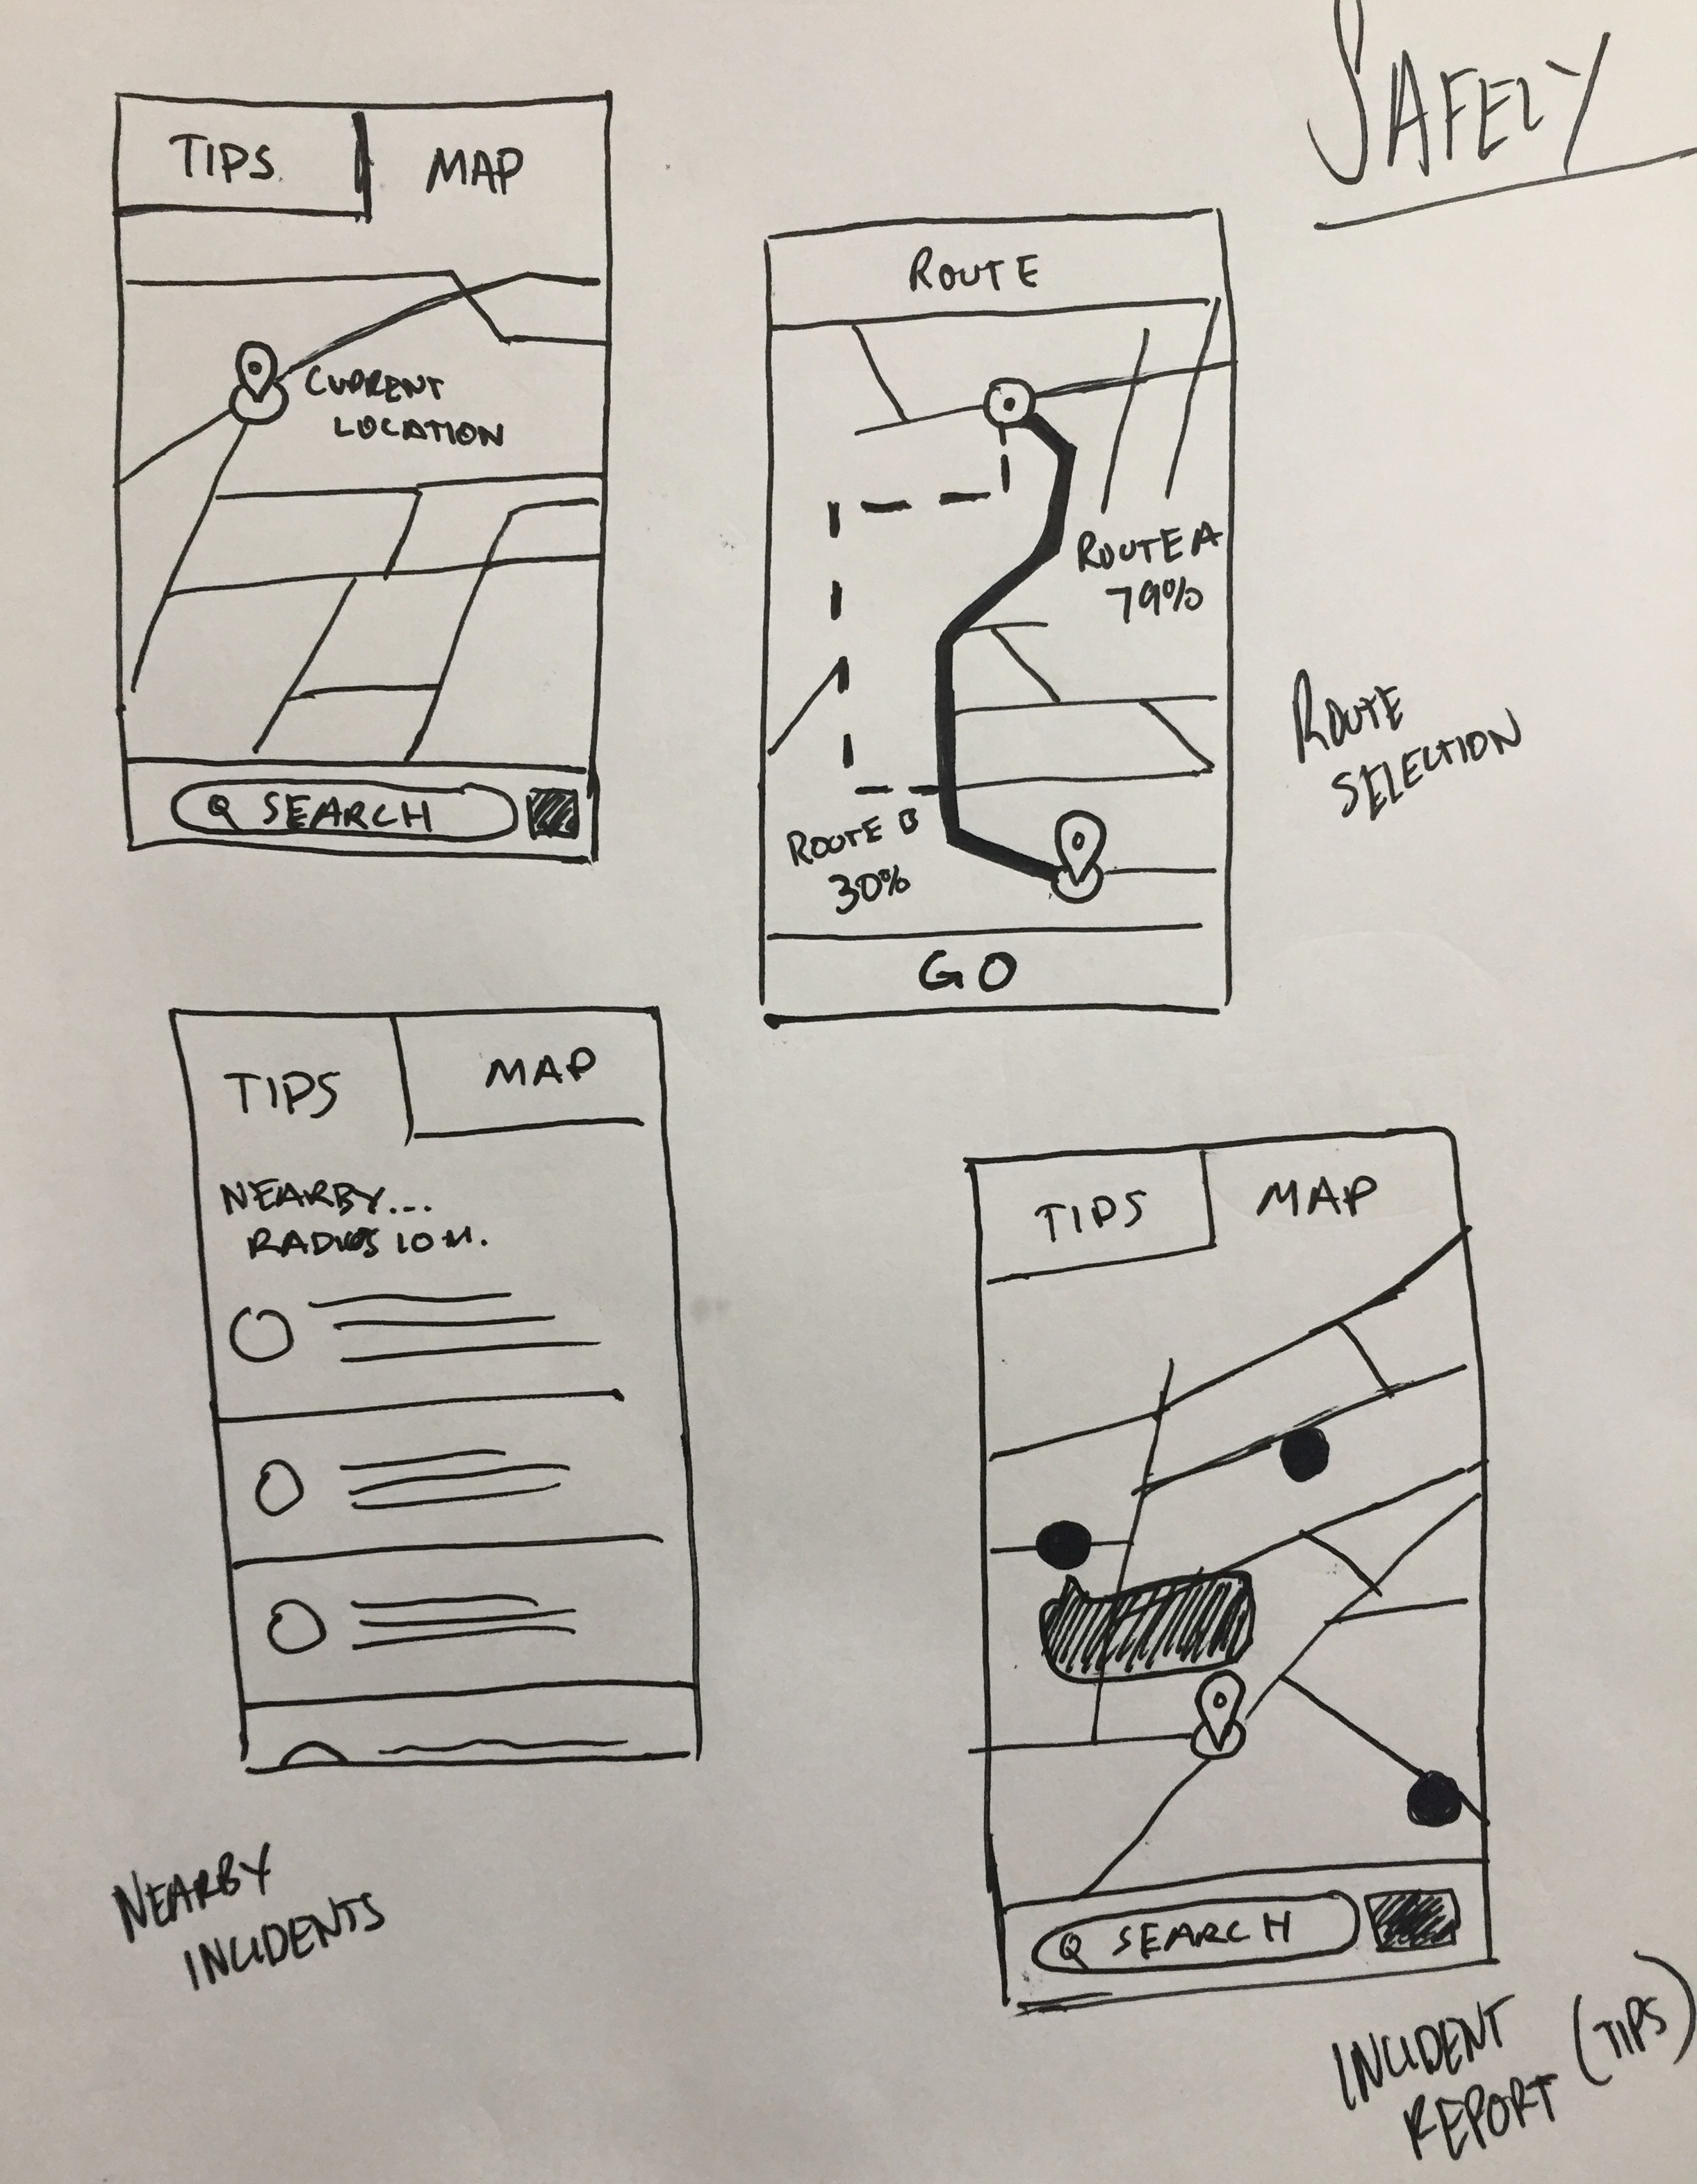 SAFELY
TIPS
MAP
CURRENT
LOCATION
SEARCH
ROUTE
ROUTE A
79%
ROUTE B
30%
GO
ROUTE
SELECTION
TIPS
MAP
NEARBY...
RADIUS 10 M.
NEARBY
INCIDENTS
TIPS
MAP
SEARCH
INCIDENT
REPORT
(TIPS)